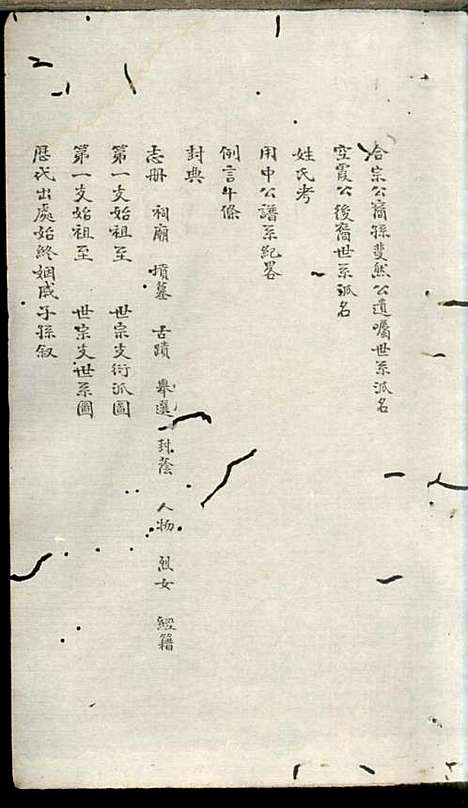 合宗公裔孫斐然公遺囑世系派名
空霞公後裔世系派名
姓氏考
用中公譜系紀畧
例言斗條
封典
志册 祠廟 墳墓 古蹟 舉選 封蔭 人物 烈女 經籍
第一支始祖至 世宗支衍派圖
第一支始祖至 世宗支世系圖
歷代出處始終姻戚子孫叙